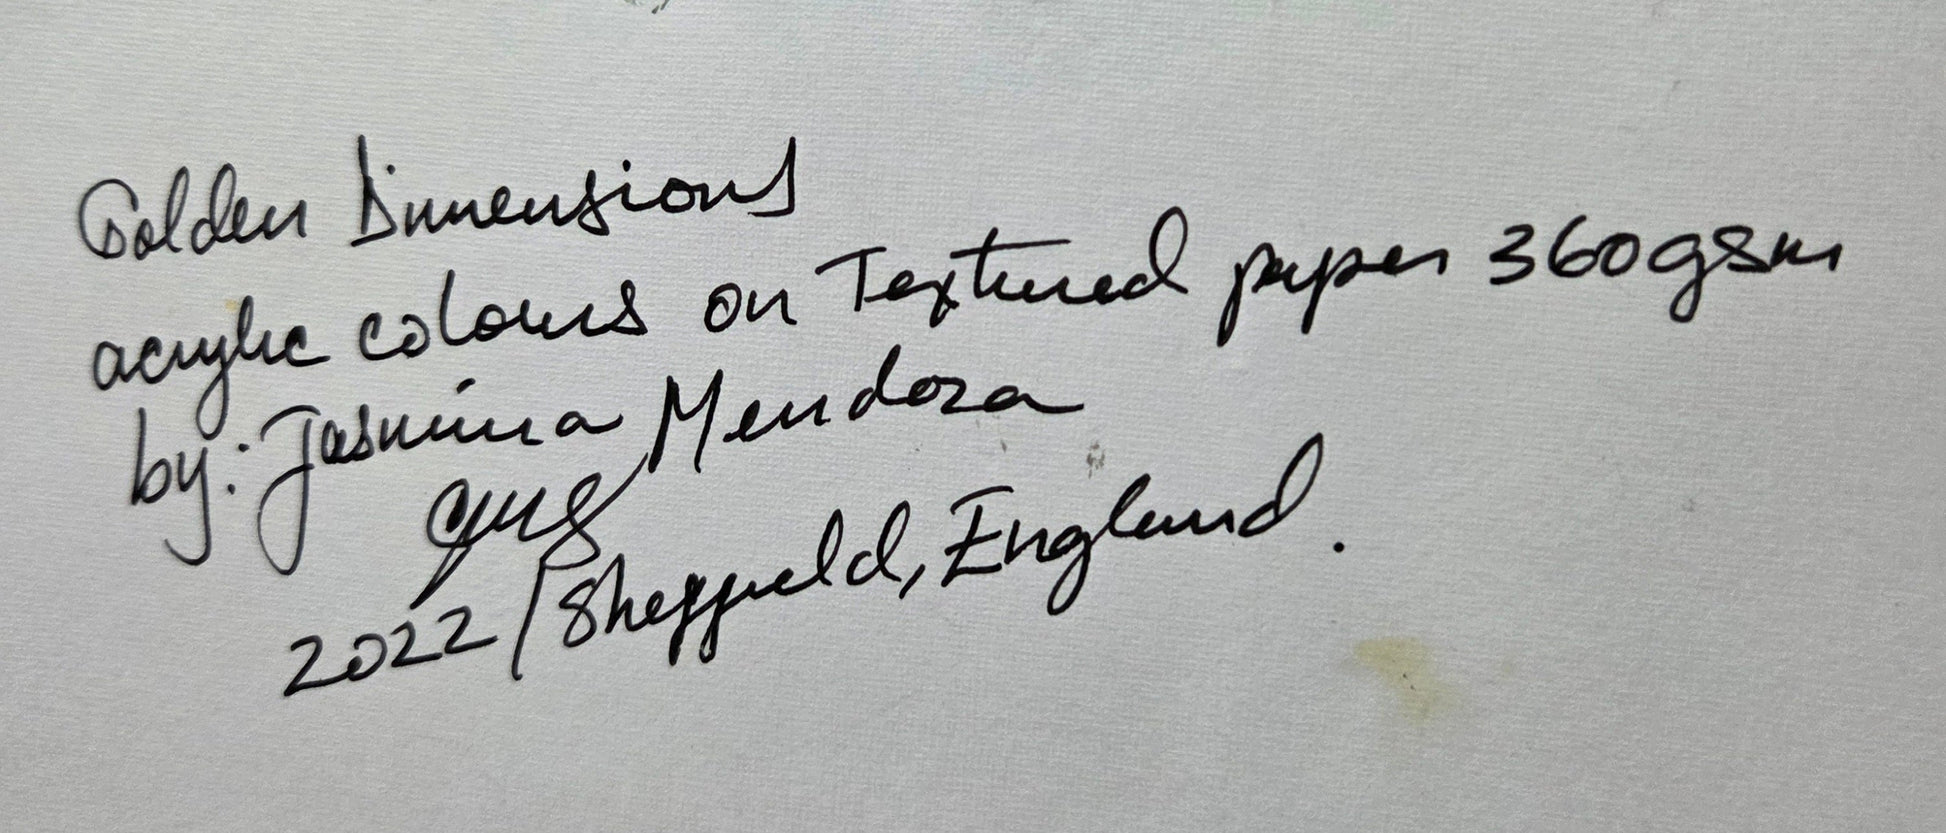 Golden Dimensions
acrylic colours on Textured paper 360gsm
by: Jasmina Mendoza
2022/Sheffield, England.